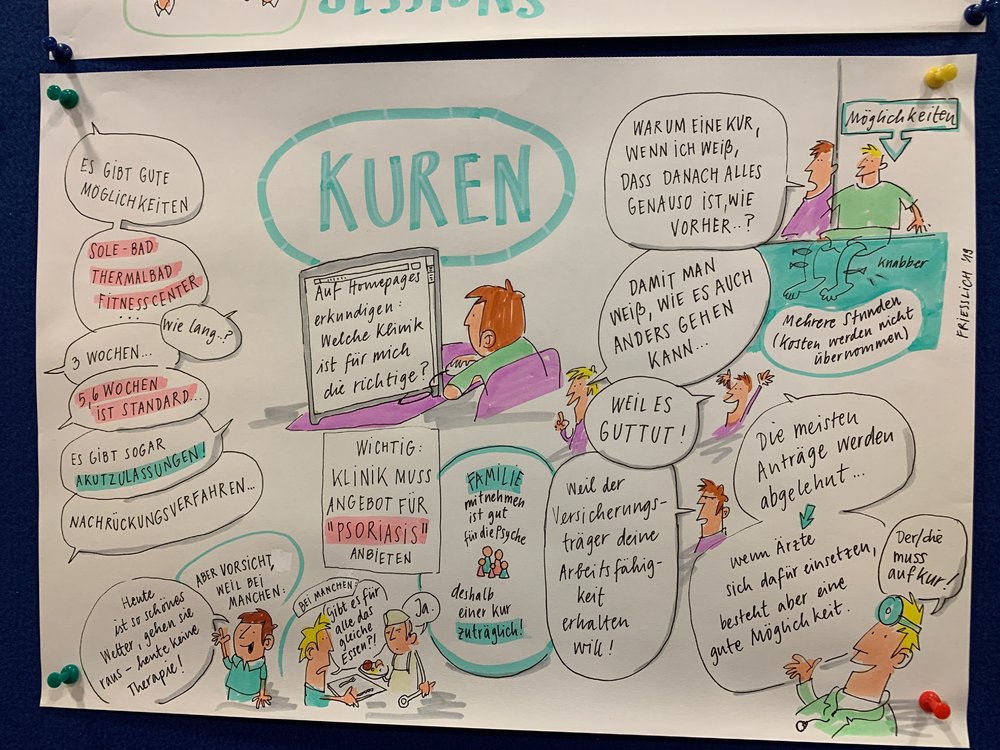 SESSIONS
KUREN
ES GIBT GUTE
MÖGLICHKEITEN
SOLE-BAD
THERMALBAD
FITNESSCENTER
...
Wie lang..?
3 WOCHEN...
5,6 WOCHEN
IST STANDARD...
ES GIBT SOGAR
AKUTZULASSUNGEN!
NACHRÜCKUNGSVERFAHREN...
Auf Homepages
erkundigen:
Welche Klinik
ist für mich
die richtige?
WICHTIG:
KLINIK MUSS
ANGEBOT FÜR
"PSORIASIS"
ANBIETEN
WARUM EINE KUR,
WENN ICH WEIß,
DASS DANACH ALLES
GENAUSO IST, WIE
VORHER..?
DAMIT MAN
WEIß, WIE ES AUCH
ANDERS GEHEN
KANN...
WEIL ES
GUTTUT!
Möglichkeiten
Knabber
Mehrere Stunden
(Kosten werden nicht
übernommen)
FRIESSLICH '19
FAMILIE
mitnehmen
ist gut
für die Psyche
deshalb
einer Kur
zuträglich!
Weil der
Versicherungs-
träger deine
Arbeitsfähig-
keit
erhalten
will!
Die meisten
Anträge werden
abgelehnt...
wenn Ärzte
sich dafür einsetzen,
besteht aber eine
gute Möglichkeit.
Der/die
muss
auf Kur!
ABER VORSICHT,
WEIL BEI
MANCHEN:
Heute
ist so schönes
Wetter, gehen sie
raus – heute keine
Therapie!
BEI MANCHEN:
Gibt es für
alle das
gleiche
Essen?!
Ja.